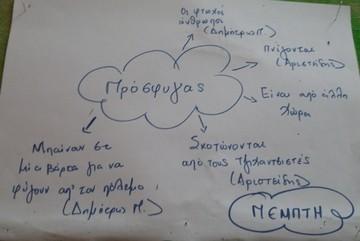 οι φτωχοί
άνθρωποι
(Δημήτρης Π.)
Πνίγονται
(Αριστείδης)
Πρόσφυγας
Είναι από άλλη
χώρα
Μπαίνουν σε
μία βάρκα για να
φύγουν απ' τον πόλεμο
(Δημήτρης Π.)
Σκοτώνονται
από τους Τζιχαντιστές
(Αριστείδης)
ΠΕΜΠΤΗ